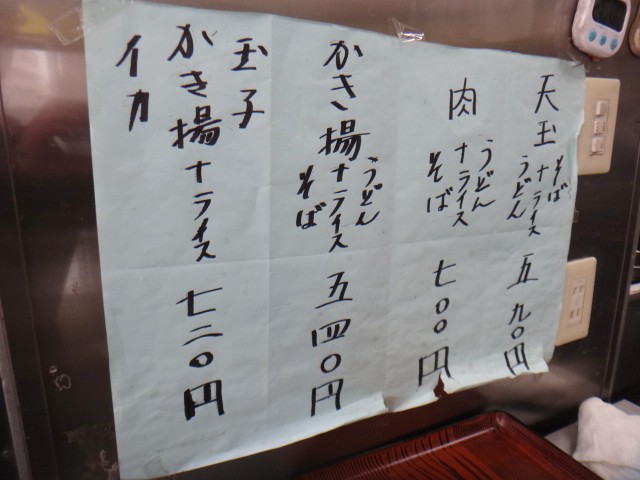 天玉 そば うどん +ライス 五九〇円
肉 うどん そば +ライス 七〇〇円
かき揚 うどん そば +ライス 五四〇円
玉子 イカ かき揚 +ライス 七二〇円